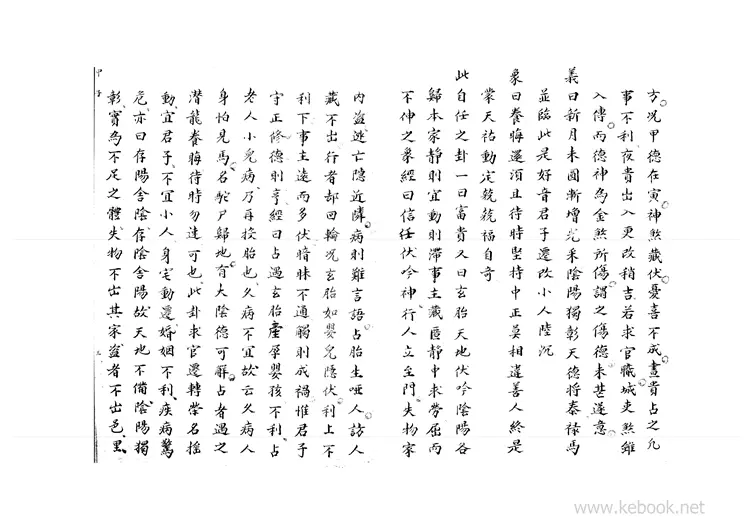 方况甲德在寅神煞藏伏憂喜不成晝貴占之凡
事不利夜貴出入更改稍吉若求官職城吏煞雖
入傳而德神為金煞所傷謂之傷德未甚遂意
義曰新月未圓漸增光采陰陽獨彰天德將泰祿馬
並臨此是好音君子遷改小人陸沉
象曰養晦還須且待時堅持中正莫相違善人終是
蒙天祐動定兢兢福自奇
此自任之卦一曰富貴又曰玄胎天地伏吟陰陽各
歸本家靜則宜動則滯事主藏匿靜中求勞屈而
不伸之象經曰信任伏吟神行人立至門失物家
內盜逃亡隱近隣病則難言語占胎生啞人訪人
藏不出行者却回輪况玄胎如嬰兒隱伏利上不
利下事主遠而多伏暗昧不通觸則成禍惟君子
守正修德則亨經曰占遇玄胎產孕嬰孩不利占
老人小兒病乃再投胎也久病不宜故云久病人
身怕見馬名駝尸歸地有大陰德可解占者遇之
潛龍養晦待時勿違可也此卦求官遷轉榮名指
動宜君子不宜小人身宅動遷婚姻不利疾病驚
危亦曰存陽舍陰存陰舍陽故天地不備陰陽獨
彰實為不足之體失物不出其家盜者不出邑里
甲子
www.kebook.net